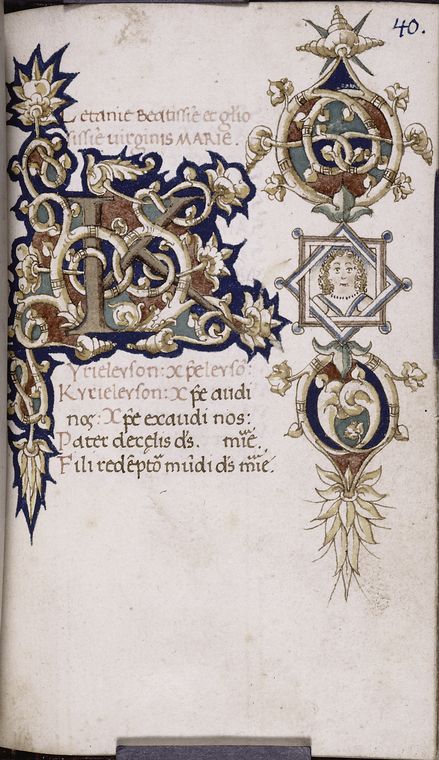 40.
Letanie Beatissīe et glīo
sissīe uirginis MARIE.
K
Yrieleyson: xp̄eleyso:
Kyrieleyson: Xp̄e audi
nos: Xp̄e exaudi nos:
Pater decęlis ds. mīe.
Fili redēptō mūdi ds mīe.